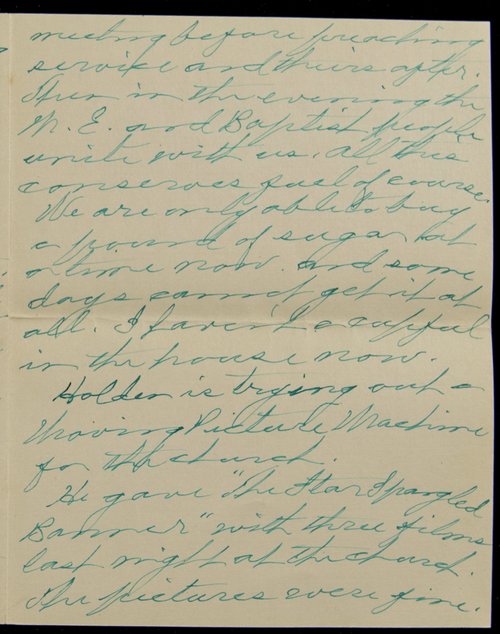 meeting before preaching
service and theirs after.
Then in the evening the
M. E. and Baptist people
unite with us. All this
conserves fuel of course.
We are only able to buy
a pound of sugar at
a time now. and some
days cannot get it at
all. I haven't a cupful
in the house now.
Holden is trying out a
Moving Picture Machine
for the church.
He gave "The Star Spangled
Banner" with three films
last night at the church.
The pictures were fine.